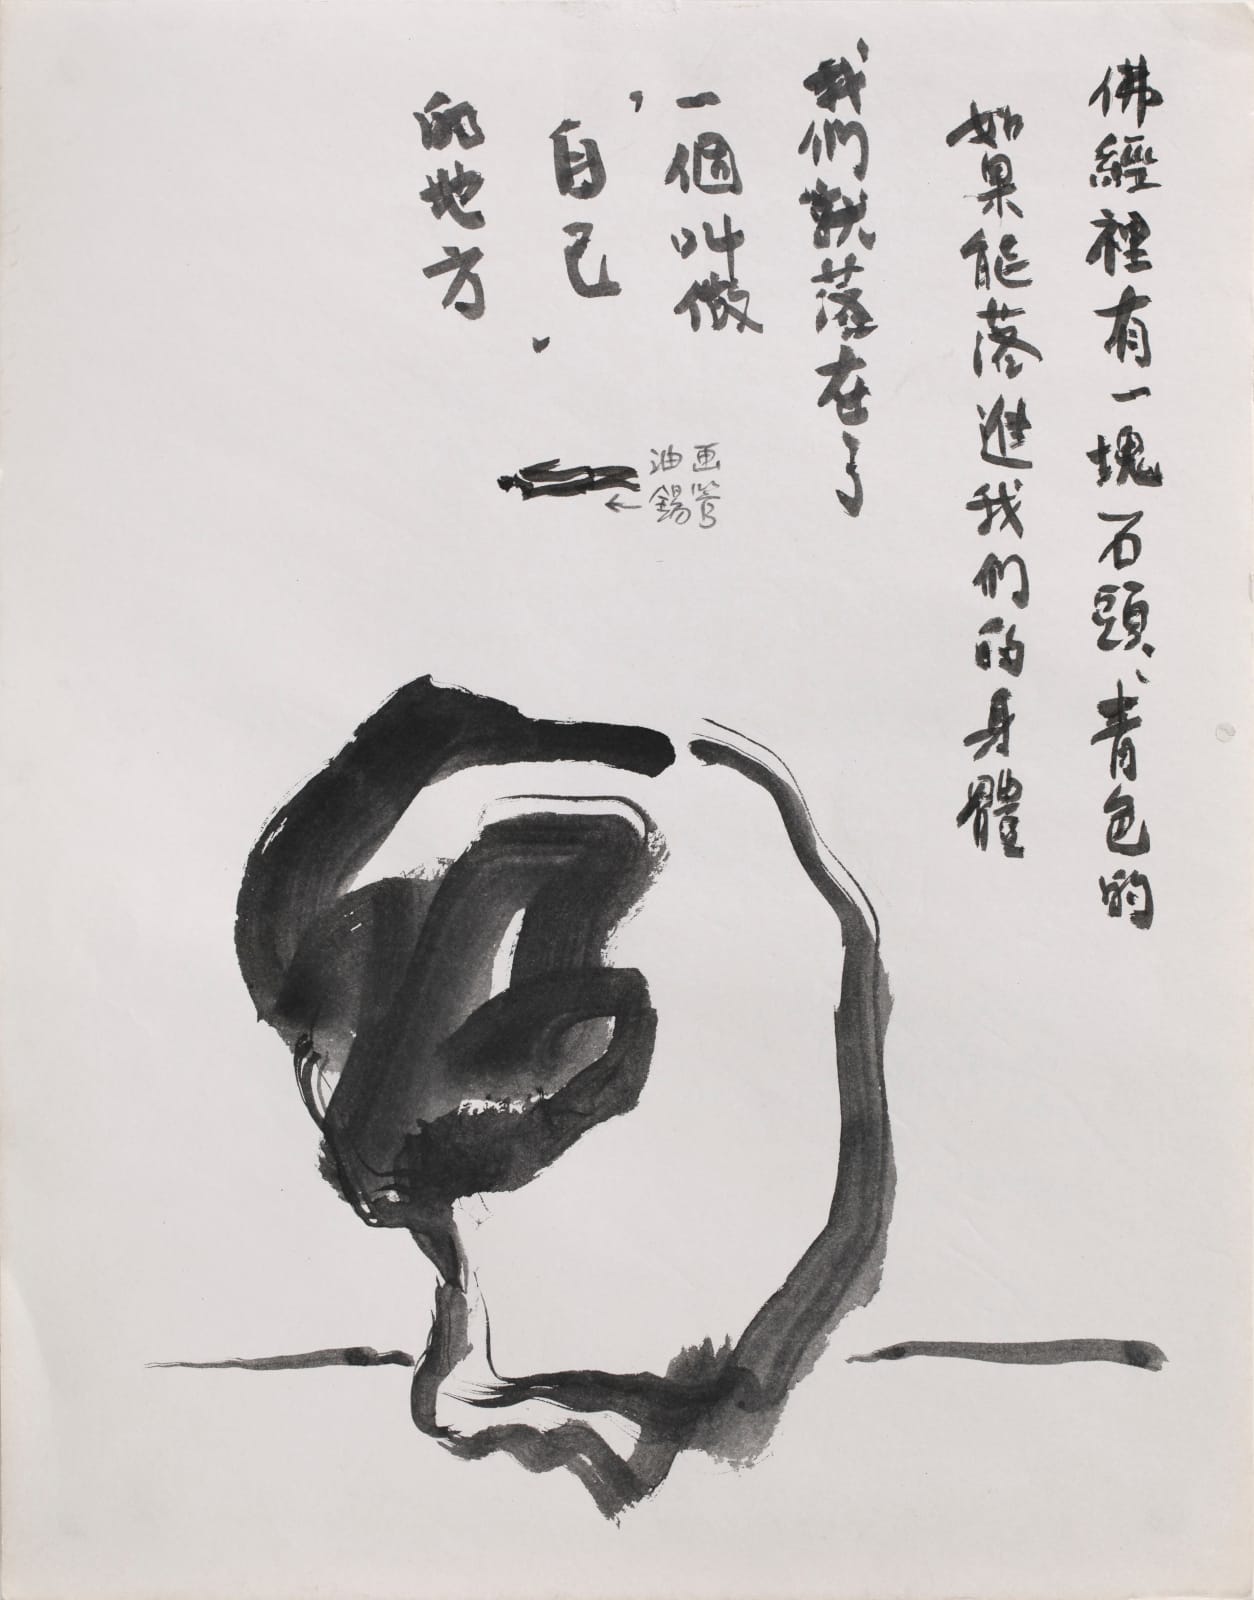 佛經裡有一塊石頭、青色的
如果能落進我们的身體
我們就落在了
一個叫做
，自己
的地方
.
油画
←錫管